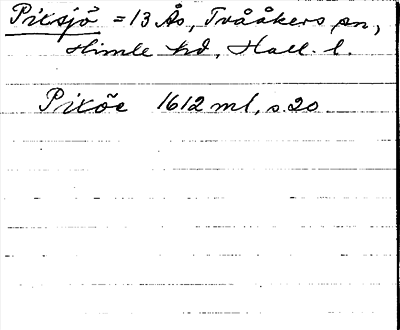 Pixsjö = 13 Ås, Tvååkers sn,
Himle hd, Hall. l.
Pixöe 1612 ml, s. 20